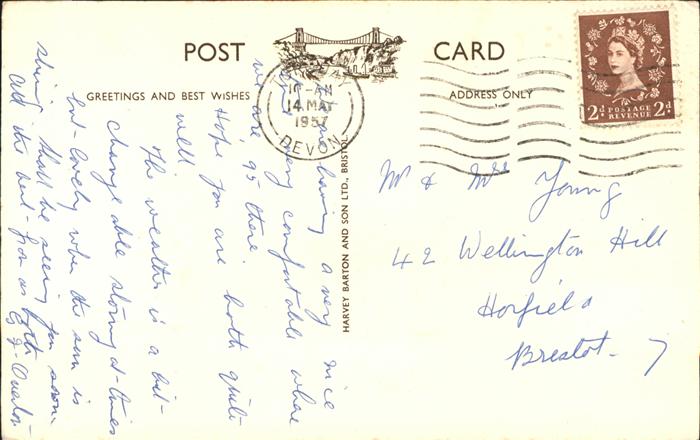 POST CARD
GREETINGS AND BEST WISHES
ADDRESS ONLY
10-AM
14 MAY
1957
DEVON
2d POSTAGE 2d
REVENUE
HARVEY BARTON AND SON LTD., BRISTOL
having a very nice
very comfortable where
we are 95 there
Hope you are both quite
well
The weather is a bit-
change able stormy at-times
but-lovely when the sun is
shining shall be seeing you soon.
all the best- from us both
Mr & Mrs Young
42 Wellington Hill
Horfield
Brestol- 7